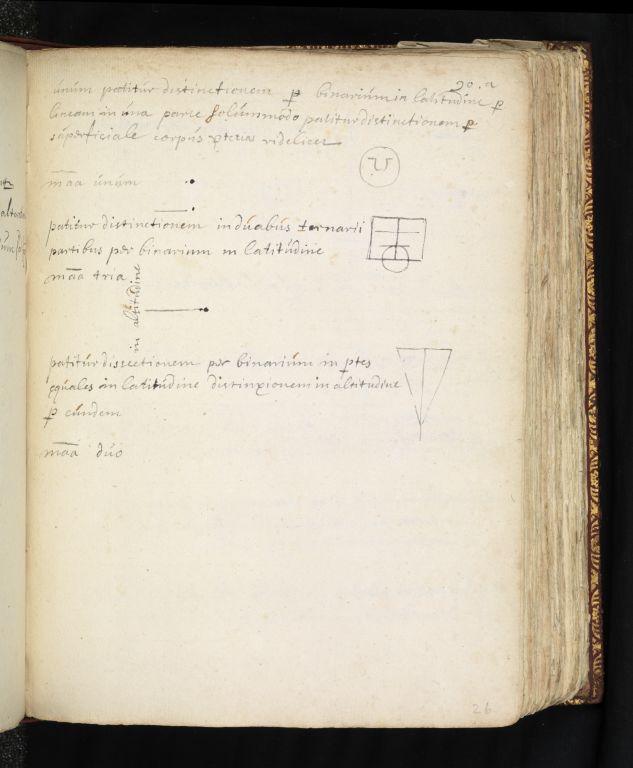 20.a
unum patitur distinctionem ꝑ binarium in latitudine ꝑ
lineam in una parte solummodo patitur distinctionem ꝑ
superficiale corpus videlicet
m̅a̅a̅ unum
patitur distinctionem in duabus ternarii
partibus per binarium in latitudine
m̅a̅a̅ tria
in altitudine
patitur dissectionem per binarium in ꝑtes
equales in latitudine distinxionem in altitudine
ꝑ eundem
m̅a̅a̅ duo
26